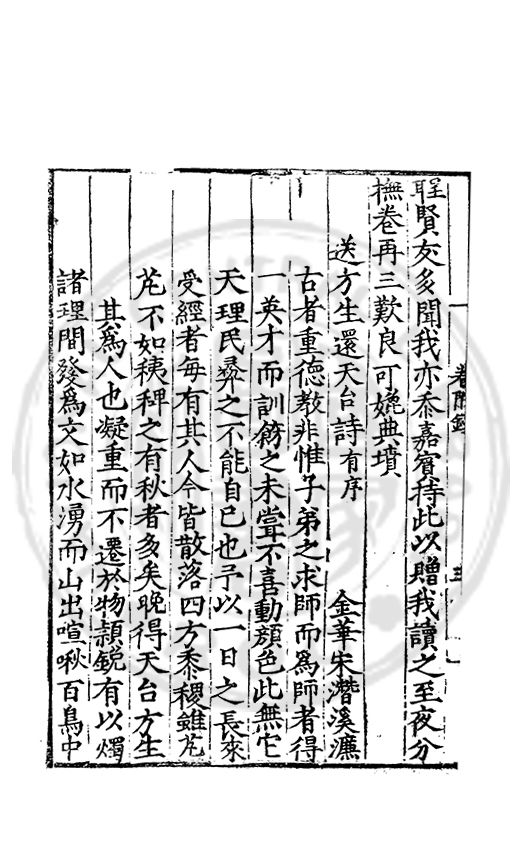 聖賢友多聞我亦忝嘉賓持此以贈我讀之至夜分
撫卷再三歎良可媲典墳
送方生還天台詩有序
金華宋潛溪濂
古者重德教非惟子弟之求師而為師者得
一英才而訓飭之未嘗不喜動顏色此無它
天理民彝之不能自已也予以一日之長來
受經者每有其人今皆散落四方黍稷雖芃
芃不如稊稗之有秋者多矣晚得天台方生
其為人也凝重而不遷於物穎銳有以燭
諸理間發為文如水湧而山出喧啾百鳥中